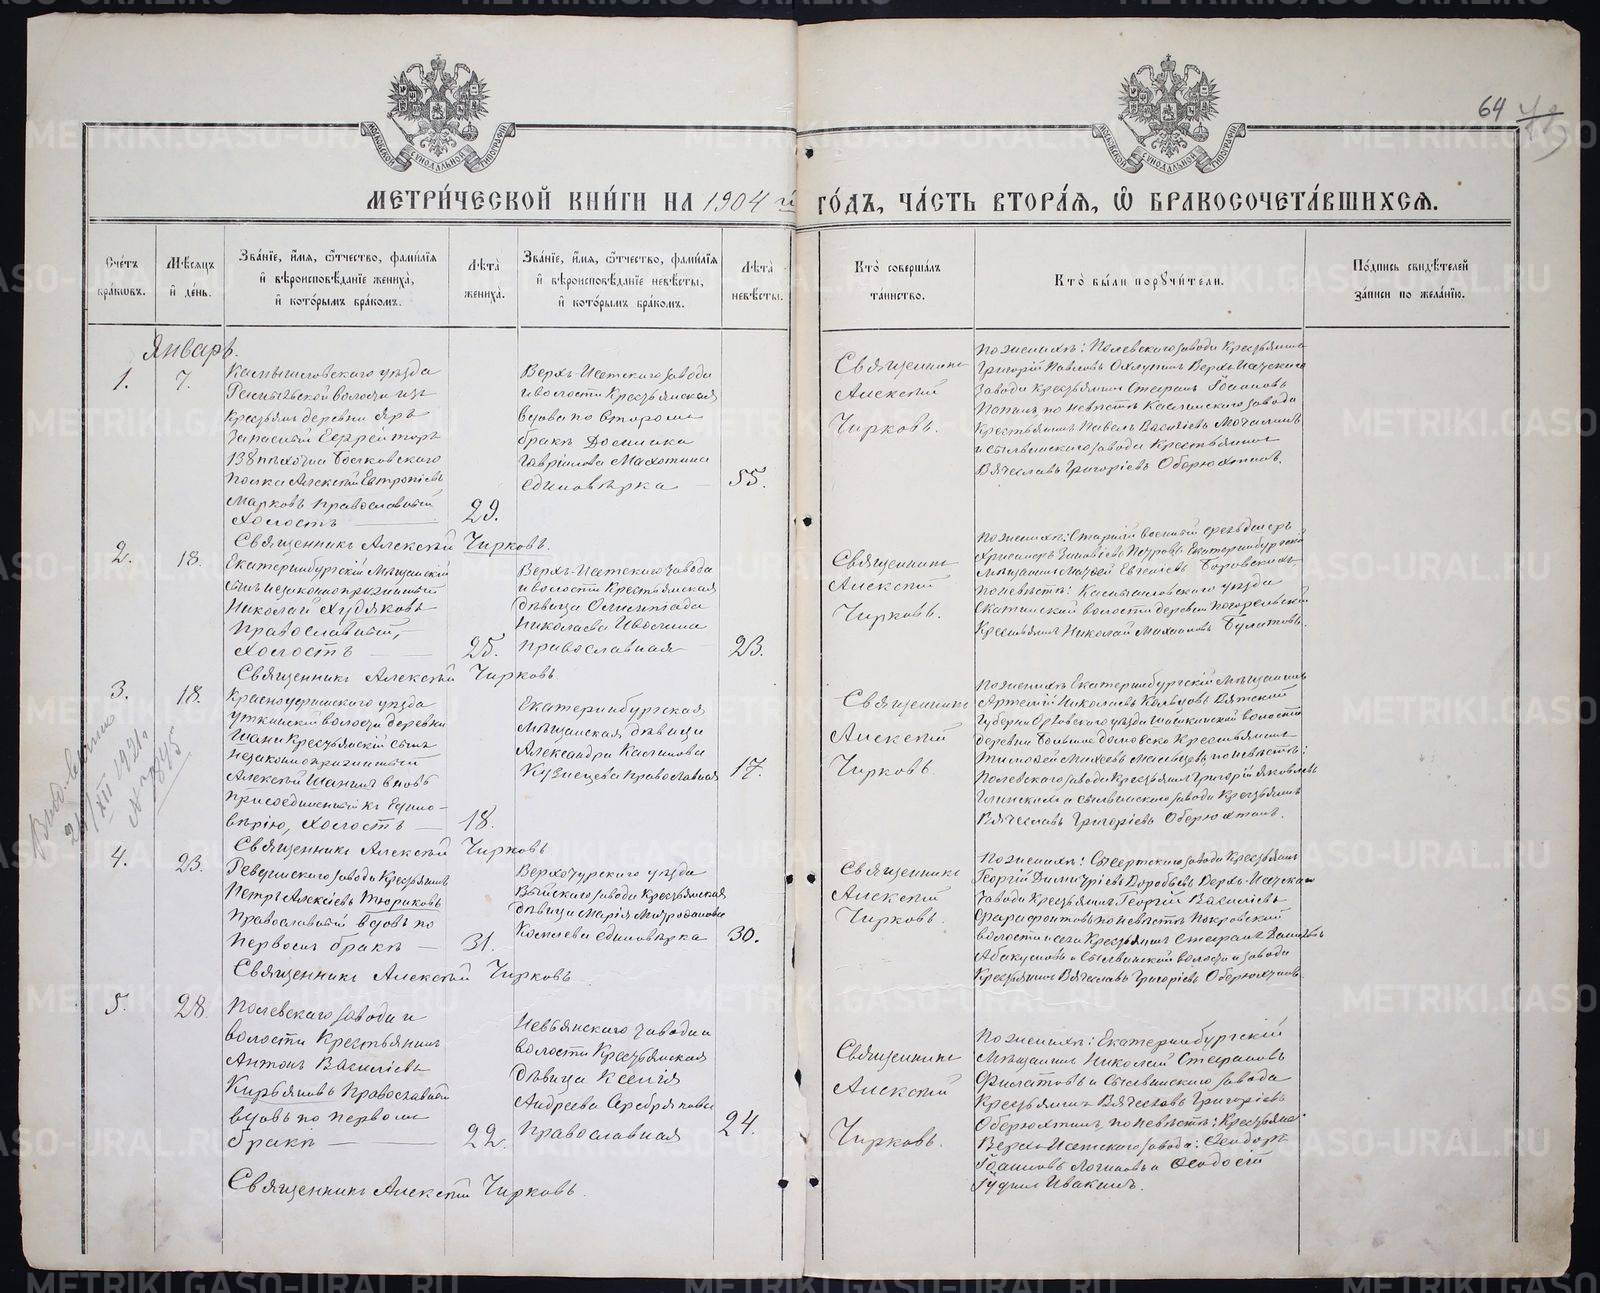 64
МЕТРИ́ЧЕСКОЙ КНИ́ГИ НА 1904 й ГО́ДЪ, ЧА́СТЬ ВТОРА́Я, Ѿ БРАКОСОЧЕТА́ВШИХСЯ.
Сче́тъ бра́ковъ.
Мѣ́сяцъ и҆ де́нь.
Зва́нїе, и҆́мя, ѻ҆́тчество, фами́лїя и҆ вѣроисповѣ́данїе жениха̀, и҆ кото́рымъ бра́комъ.
Лѣ́та жениха̀.
Зва́нїе, и҆́мя, ѻ҆́тчество, фами́лїя и҆ вѣроисповѣ́данїе невѣ́сты, и҆ кото́рымъ бра́комъ.
Лѣ́та невѣ́сты.
Кто̀ соверша́лъ та́инство.
Кто̀ бы́ли порꙋчи́тели.
По́дпись свидѣ́телей за́писи по жела́нїю.
Январь.
1.
7.
Камышловскаго уѣзда
волости изъ
Крестьянъ деревни Яръ
Запасный Ефрейторъ
138 пѣхотн. Болховскаго
полка Алексѣй Евтропіевъ
Марковъ Православный
Холостъ
29.
Верхъ-Исетскаго завода
и волости Крестьянская
вдова по второмъ
бракѣ Домника
Гавріилова Махотина
единовѣрка
55.
Священникъ
Алексѣй
Чирковъ.
По женихѣ: Полевскаго завода Крестьянинъ
Григорій Павловъ Охлупинъ Верхъ-Исетскаго
завода Крестьянинъ Стефанъ Іоанновъ
по невѣстѣ Каслинскаго завода
Крестьянинъ Павелъ Василіевъ Мочалинъ
и Сылвинскаго завода Крестьянинъ
Вячеславъ Григоріевъ Оберюхтинъ.
Священникъ Алексѣй Чирковъ.
2.
18.
Екатеринбургскій Мѣщанскій
сынъ незаконнопризнанный
Николай Худяковъ
Православный,
Холостъ
25.
Верхъ-Исетскаго завода
и волости Крестьянская
дѣвица Олимпіада
Николаева Ивонина
православная
23.
Священникъ
Алексѣй
Чирковъ.
По женихѣ: Старшій военный фельдшеръ
Хрисанфъ Зиновіевъ Петровъ Екатеринбургскій
Мѣщанинъ Матѳей Евгеніевъ Боровскихъ
По невѣстѣ: Камышловскаго уѣзда
Скатинской волости деревни
Крестьянинъ Николай Михаиловъ Булатовъ.
Священникъ Алексѣй Чирковъ.
3.
18.
Красноуфимскаго уѣзда
Уткинской волости деревни
Шани Крестьянскій сынъ
незаконнопризнанный
Алексѣй Шанинъ вновь
присоединенный къ Едино-
вѣрію, Холостъ
18.
Екатеринбургская
Мѣщанская дѣвица
Александра Каллинова
Кузнецова Православная
17.
Священникъ
Алексѣй
Чирковъ
По женихѣ Екатеринбургскій Мѣщанинъ
Артемій Николаевъ Кольцовъ Вятской
Губерніи Орловскаго уѣзда волости
деревни Крестьянинъ
Тимоѳей Михеевъ по невѣстѣ:
Полевскаго завода Крестьянинъ Григорій Яковлевъ
и Сылвинскаго завода Крестьянинъ
Вячеславъ Григоріевъ Оберюхтинъ.
Священникъ Алексѣй Чирковъ
4.
23.
Ревдинскаго завода Крестьянинъ
Петръ Алексіевъ Тюриковъ
Православный вдовъ по
первомъ бракѣ
31.
Верхотурскаго уѣзда
Выйскаго завода Крестьянская
дѣвица Марія Митрофанова
единовѣрка
30.
Священникъ
Алексѣй
Чирковъ.
По женихѣ: Сысертскаго завода Крестьянинъ
Георгій Димитріевъ Воробьевъ Верхъ-Исетскаго
завода Крестьянинъ Георгій Василіевъ
Фарафонтовъ по невѣстѣ Покровской
волости и села Крестьянинъ Стефанъ
Абакумовъ и Сылвинской волости и завода
Крестьянинъ Вячеславъ Григоріевъ Оберюхтинъ.
Священникъ Алексѣй Чирковъ.
5.
28.
Полевскаго завода и
волости Крестьянинъ
Антонъ Василіевъ
Кирьяновъ Православный
вдовъ по первомъ
бракѣ
22.
Невьянскаго завода и
волости Крестьянская
дѣвица Ксенія
Андреева Серебрякова
Православная
24.
Священникъ
Алексѣй
Чирковъ.
По женихѣ: Екатеринбургскій
Мѣщанинъ Николай Стефановъ
Филатовъ и Сылвинскаго завода
Крестьянинъ Вячеславъ Григоріевъ
Оберюхтинъ по невѣстѣ: Крестьяне
Верхъ-Исетскаго завода: Ѳеодоръ
Іоанновъ Логиновъ и Ѳеодосій
Ивакинъ.
Священникъ Алексѣй Чирковъ.
24/XII 1921.
METRIKI.GASO-URAL.RU